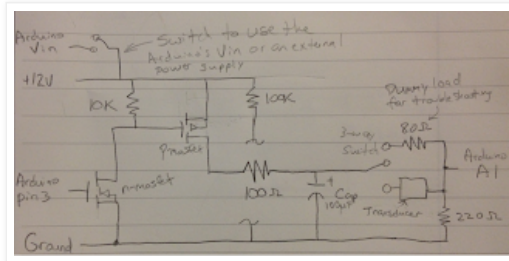 Arduino
Vin
Switch to use the
Arduino's Vin or an external
power supply
+12V
10K
100K
Dummy load
for troubleshooting
Pmosfet
3-way
Switch
80Ω
Arduino
A1
Arduino
pin 3
n-mosfet
100Ω
+
Cap
100µF
Transducer
220Ω
Ground